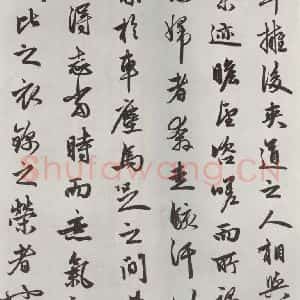 擁後夾道之人相與
迹瞻望咨嗟而所
婦者奔走駭汗
於車塵馬足之間
得志當時而意氣
比之衣錦之榮者
Shufawang.CN